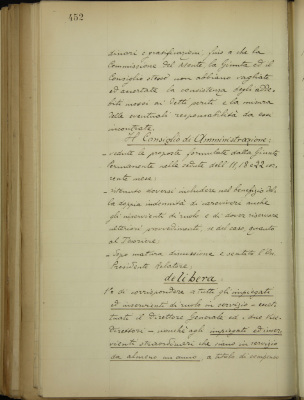 452
diversi e gratificazioni, fino a che la
Commissione del Monte, la Giunta ed il
Consiglio stesso non abbiano vagliata
ed accertata la consistenza degli adde-
biti mossi ai detti periti e la misura
delle eventuali responsabilità da essi
incontrate.
Il Consiglio di Amministrazione:
- vedute le proposte formulate dalla Giunta
permanente nelle sedute dell' 11, 18 e 22 cor-
rente mese;
- ritenuto doversi includere nel beneficio del-
la doppia indennità di caroviveri anche
gli inservienti di ruolo e di dover riservare
ulteriori provvedimenti, a del caso, quanto
al Tesoriere;
- dopo matura discussione e sentito l'On.
Presidente relatore;
delibera:
1° di corrispondere a tutti gli impiegati
ed inservienti di ruolo in servizio - eccet-
tuati il Direttore Generale ed i due Vice
Direttori - nonchè agli impiegati ed inser-
vienti straordinari che siano in servizio
da almeno un anno, a titolo di